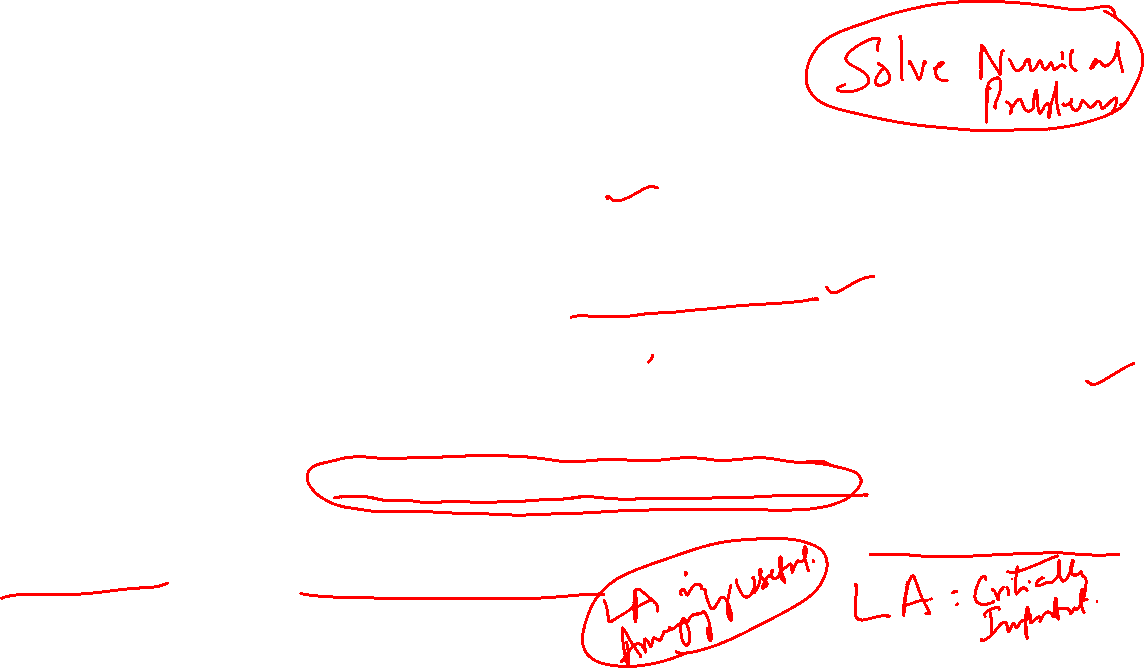 Solve Numical
Problems
LA is
Amazingly Useful.
LA : Critically
Important.